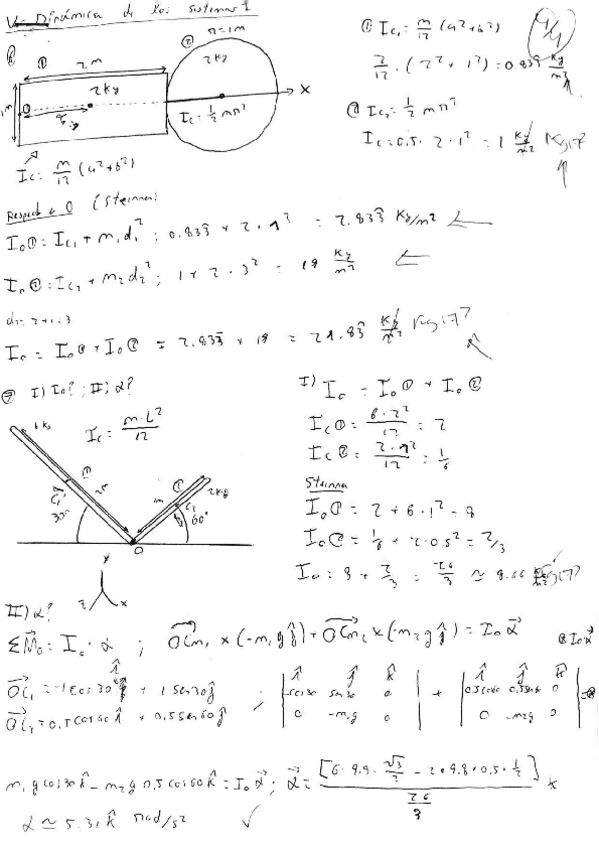 V- Dinámica de los sistemas I
⑥ ①
2m
② r=1m
2kg
1m
O
2kg
X
Ic = 1/2 mr²
Ic = m/12 (a²+b²)
① Ic₁ = m/12 (a²+b²)
2/12 · (2²+1²) = 0.83̂ kg/m²
② Ic₂ = 1/2 mr²
Ic = 0.5 · 2 · 1² = 1 kg/m² kg·m²?
Respecto a O (Steiner)
Io① = Ic₁ + m₁d₁² ; 0.83̂ + 2 · 1² = 2.833̂ kg/m²
Io② = Ic₂ + m₂d₂² ; 1 + 2 · 3² = 19 kg/m²
d₂ = 2+1 = 3
Io = Io① + Io② = 2.833̂ + 19 = 21.83̂ kg/m² kg·m²?
⑦ I) Io? ; II) α?
Ic = m·L²/12
6kg
①
2m
C₁
30º
1m
②
2kg
C₂
60º
O
y
z x
I) Io = Io① + Io②
Ic① = 6·2²/12 = 2
Ic② = 2·1²/12 = 1/6
Steiner
Io① = 2 + 6·1² = 8
Io② = 1/6 + 2·0.5² = 2/3
Io = 8 + 2/3 = 26/3 ≃ 8.66 kg·m²?
II) α?
ΣM⃗o = Io · α ; OCm₁ x (-m₁gĵ) + OCm₂ x (-m₂gĵ) = Io α⃗
OC₁ = -1cos30î + 1sen30ĵ ; | î ĵ k̂ | + | î ĵ k̂ | =
OC₂ = 0.5cos60î + 0.5sen60ĵ
-cos30 sen30 0
0 -m₁g 0
0.5cos60 0.5sen60 0
0 -m₂g 0
m₁gcos30k̂ - m₂g0.5cos60k̂ = Ioα⃗ ; α⃗ = [6·9.8·√3/2 - 2·9.8·0.5·1/2] / 26/3 k̂
α ≃ 5.31k̂ rad/s² ✓